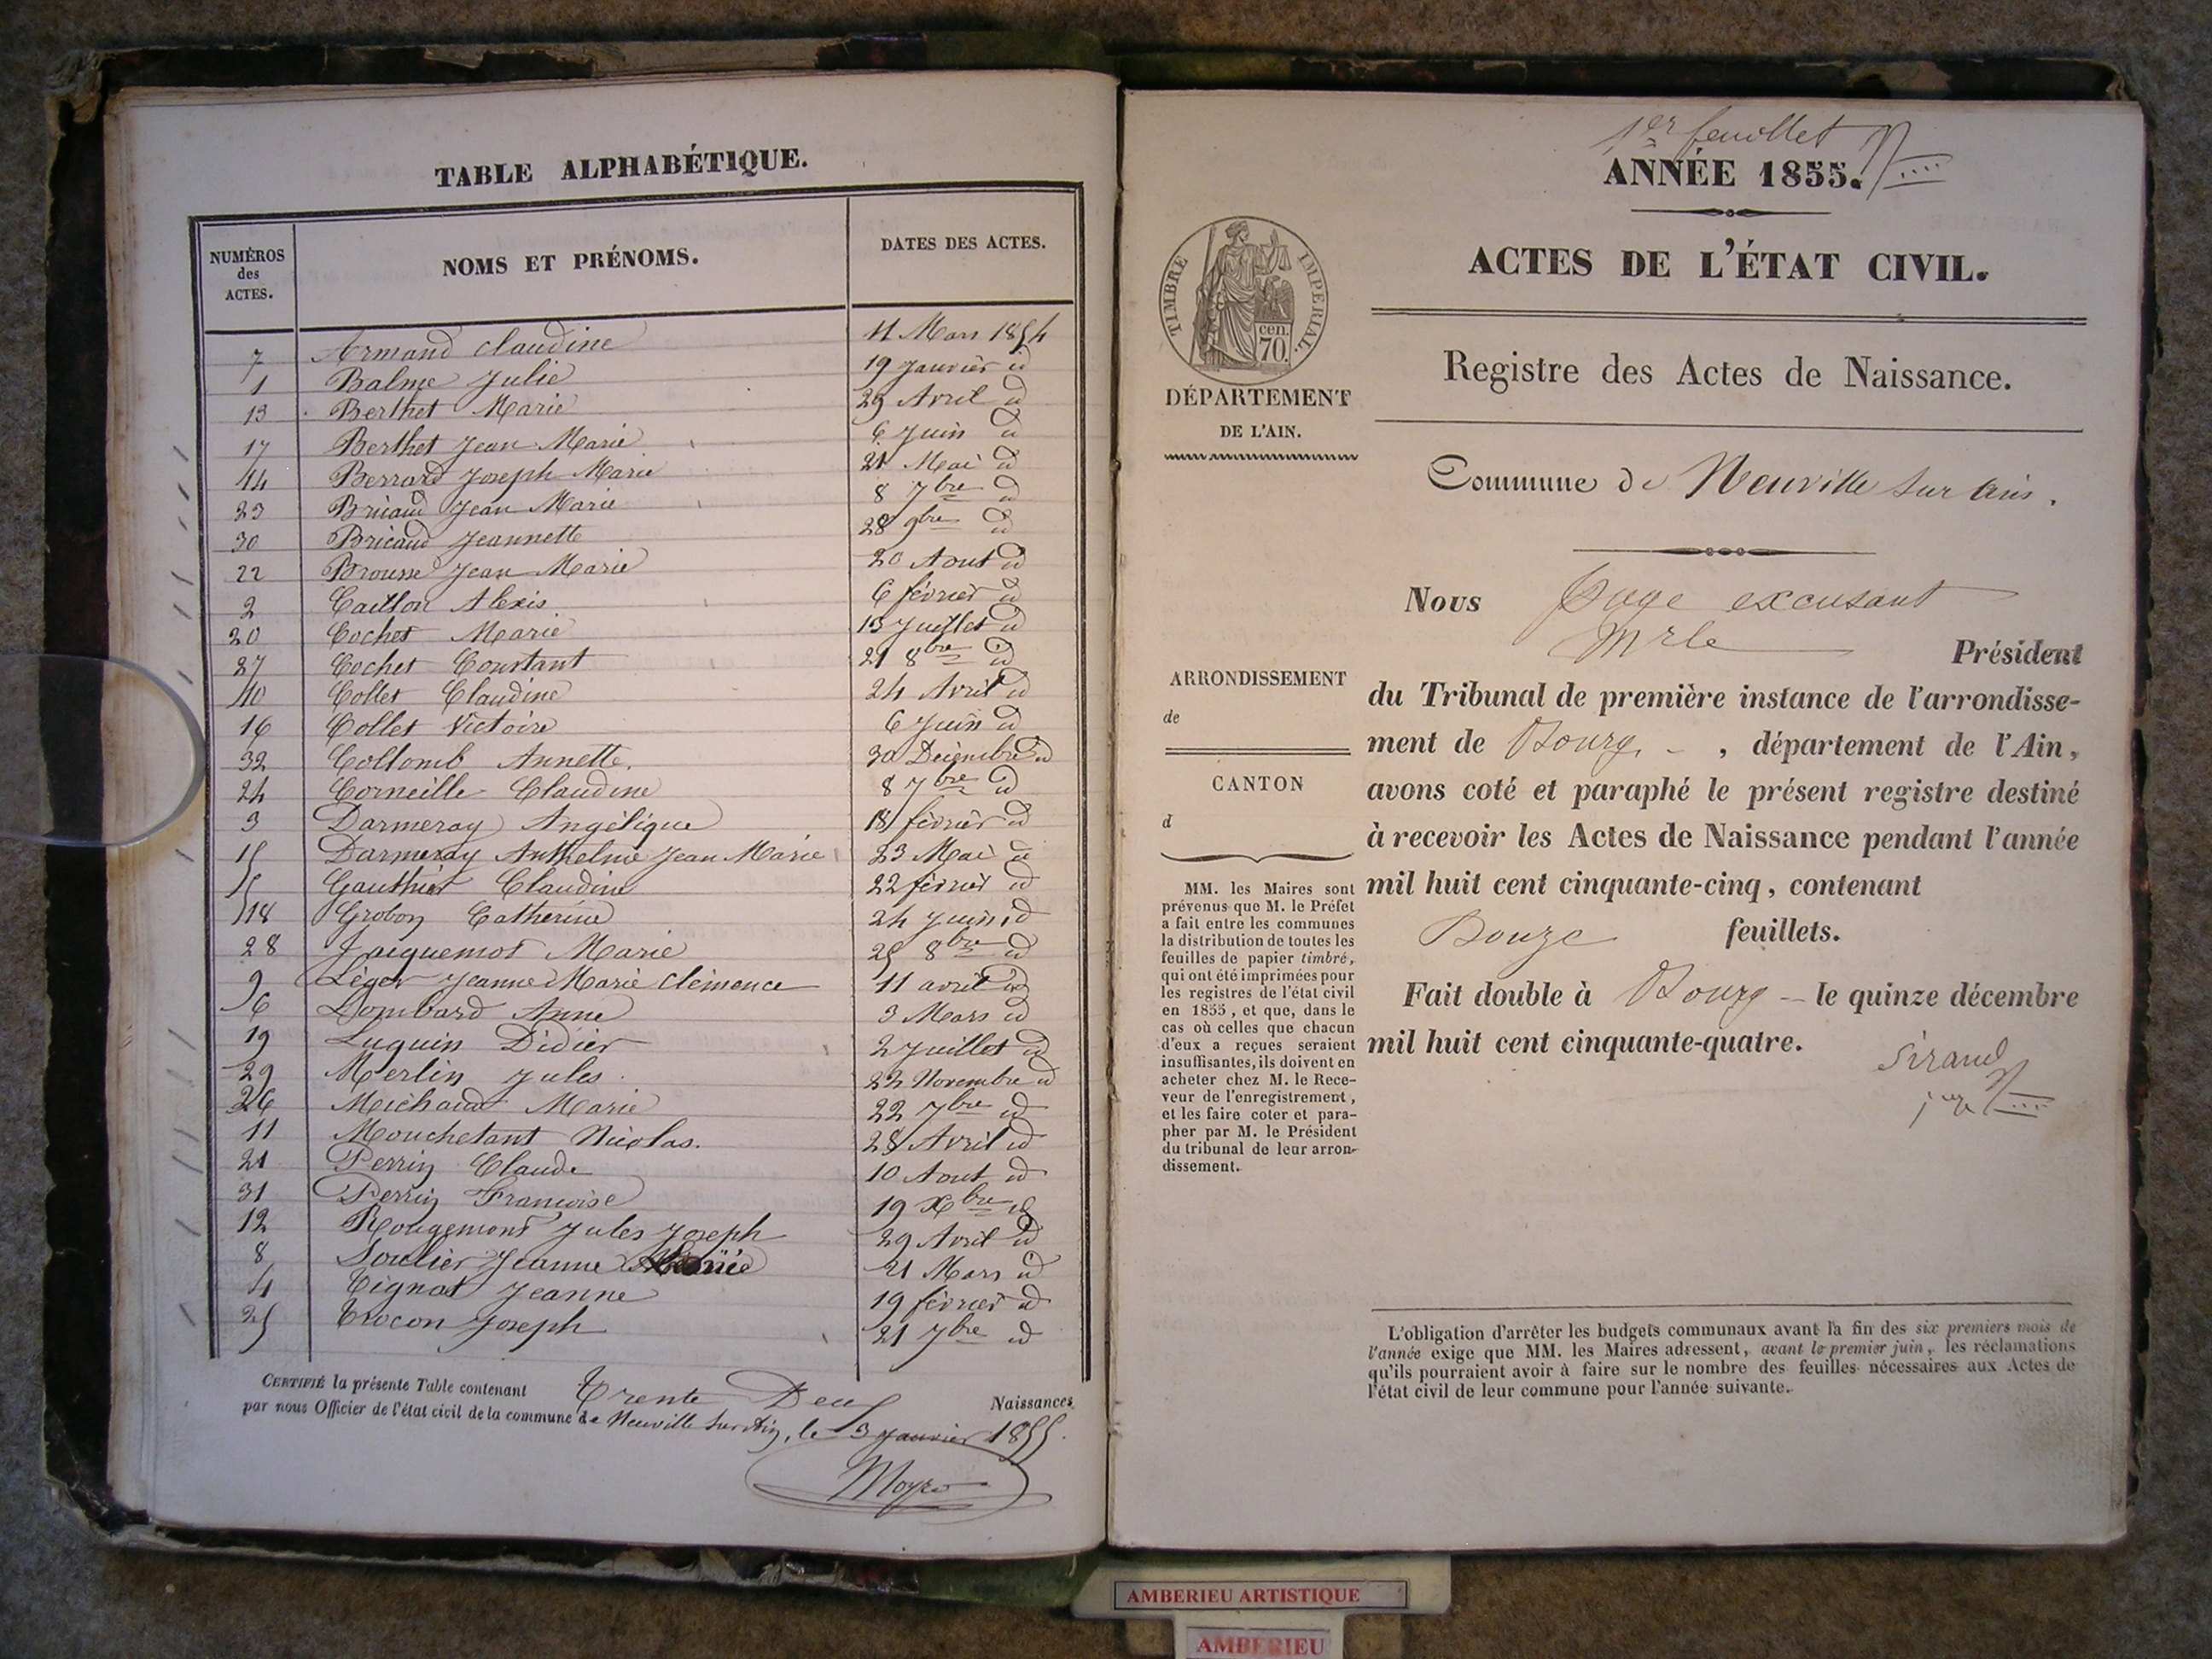 TABLE ALPHABÉTIQUE.
NUMÉROS des ACTES. NOMS ET PRÉNOMS. DATES DES ACTES.
7 Armand Claudine 11 Mars 1854
1 Balme Julie 19 Janvier id
13 Berthet Marie 29 Avril id
17 Berthet Jean Marie 6 Juin id
14 Berrard Joseph Marie 21 Mai id
23 Bricaud Jean Marie 8 7bre id
30 Bricaud Jeannette 28 9bre id
22 Brousse Jean Marie 20 Aout id
2 Caillon Alexis 6 février id
20 Cochet Marie 13 Juillet id
27 Cochet Constant 21 8bre id
10 Collet Claudine 24 Avril id
16 Collet Victoire 6 Juin id
32 Collomb Annette. 30 Décembre id
24 Corneille Claudine 8 7bre id
3 Darmeray Angélique 18 février id
15 Darmeray Anthelme Jean Marie 23 Mai id
5 Gauthier Claudine 22 février id
18 Grobon Catherine 24 Juin id
28 Jaiquemot Marie 25 8bre id
9 Léger Jeanne Marie Clémence 11 avril id
6 Lombard Anne 3 Mars id
19 Luquin Didier 2 Juillet id
29 Merlin Jules 22 Novembre id
26 Michaud Marie 22 7bre id
11 Mouchetant Nicolas. 28 Avril id
21 Perrin Claude 10 Aout id
31 Perrin Françoise 19 Xbre id
12 Rougemont Jules Joseph 29 Avril id
8 Soulier Jeanne 21 Mars id
4 Tignat Jeanne 19 février id
25 Trocon Joseph 21 7bre id
CERTIFIÉ la présente Table contenant Trente Deux Naissances
par nous Officier de l'état civil de la commune de Neuville sur Ain, le 3 Janvier 1855.
1er feuillet
ANNÉE 1855.
ACTES DE L'ÉTAT CIVIL.
TIMBRE IMPERIAL.
cen.
70.
Registre des Actes de Naissance.
DÉPARTEMENT
DE L'AIN.
Commune de Neuville sur Ain.
Nous Juge excusant
Mr le
Président
ARRONDISSEMENT
de
du Tribunal de première instance de l'arrondisse-
ment de Bourg, département de l'Ain,
CANTON
d
avons coté et paraphé le présent registre destiné
à recevoir les Actes de Naissance pendant l'année
mil huit cent cinquante-cinq, contenant
Douze feuillets.
Fait double à Bourg le quinze décembre
mil huit cent cinquante-quatre.
Sirand
juge
MM. les Maires sont
prévenus que M. le Préfet
a fait entre les communes
la distribution de toutes les
feuilles de papier timbré,
qui ont été imprimées pour
les registres de l'état civil
en 1855, et que, dans le
cas où celles que chacun
d'eux a reçues seraient
insuffisantes, ils doivent en
acheter chez M. le Rece-
veur de l'enregistrement,
et les faire coter et para-
pher par M. le Président
du tribunal de leur arron-
dissement.
L'obligation d'arrêter les budgets communaux avant la fin des six premiers mois de
l'année exige que MM. les Maires adressent, avant le premier juin, les réclamations
qu'ils pourraient avoir à faire sur le nombre des feuilles nécessaires aux Actes de
l'état civil de leur commune pour l'année suivante.
AMBERIEU ARTISTIQUE
AMBERIEU